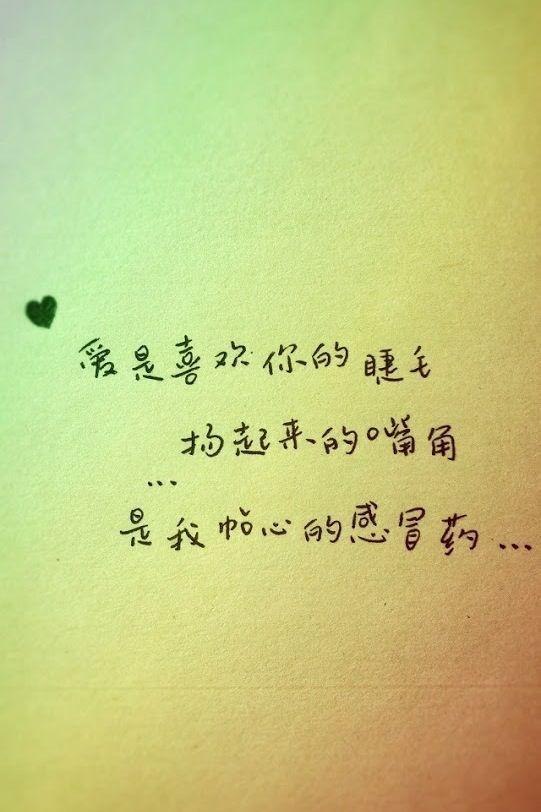 爱是喜欢你的睫毛
扬起来的嘴角
...
是我帖心的感冒药...